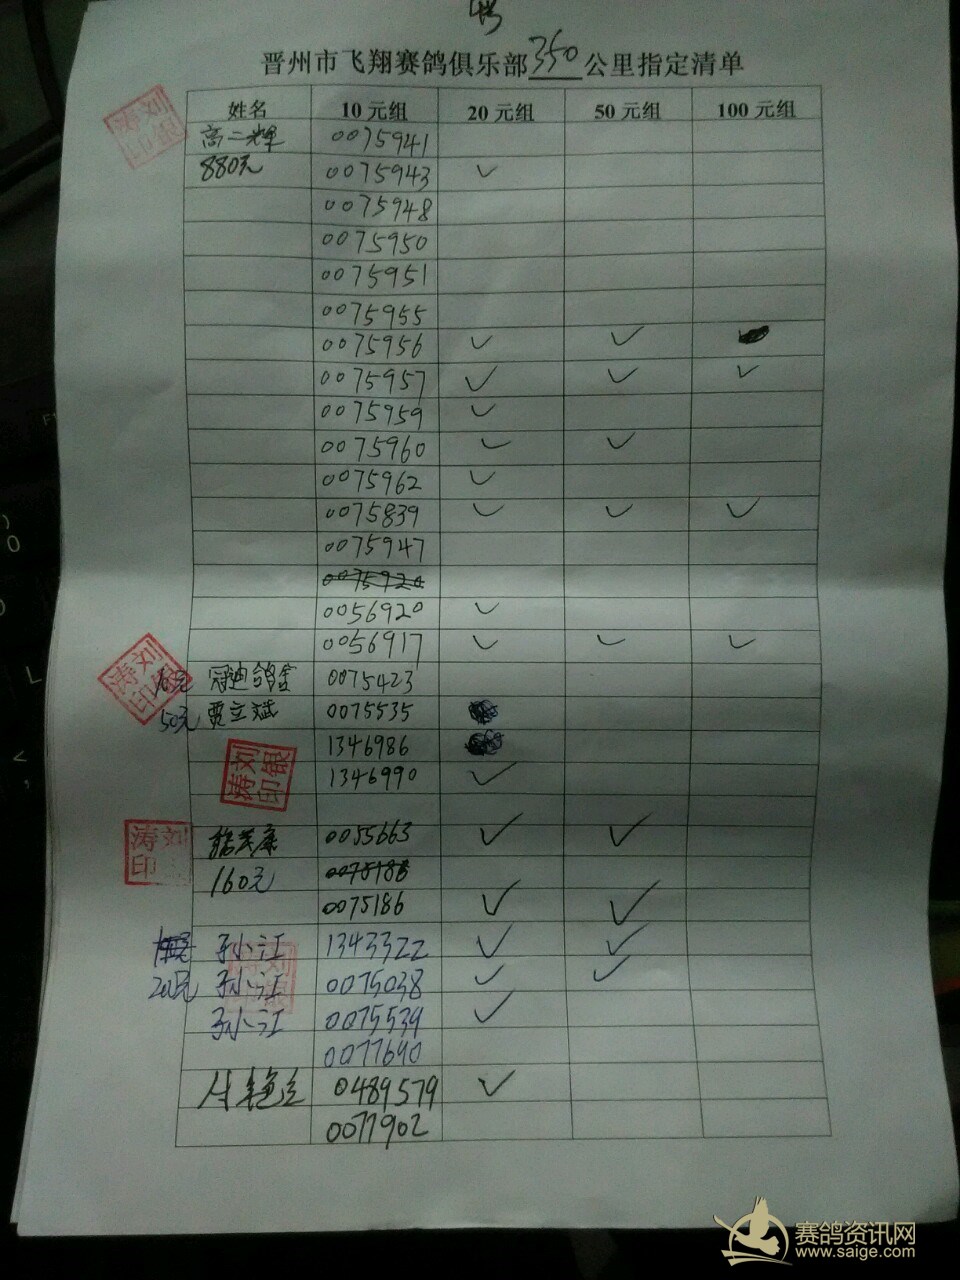 晋州市飞翔赛鸽俱乐部350公里指定清单
姓名 10元组 20元组 50元组 100元组
高二辉 0075941
880元 0075943 ✓
0075948
0075950
0075951
0075955
0075956 ✓ ✓
0075957 ✓ ✓ ✓
0075959 ✓
0075960 ✓ ✓
0075962 ✓
0075839 ✓ ✓ ✓
0075947
0075920
0056920 ✓
0056917 ✓ ✓ ✓
冠迪鸽舍 0075423
50元 贾立斌 0075535
1346986
1346990 ✓
0055663 ✓ ✓
160元 0075188
0075186 ✓ ✓
孙小江 1343322 ✓ ✓
孙小江 0075038 ✓ ✓
孙小江 0075539 ✓
0077690
0489579 ✓
0077902
刘银涛印
刘银涛印
刘银涛印
刘涛印
赛鸽资讯网
www.saige.com